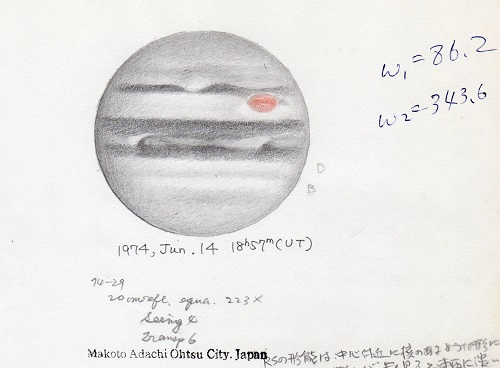 ω₁=86.2
ω₂=343.6
D
B
1974, Jun. 14 18ʰ57ᵐ(UT)
74-29
20cm refl. equa. 223×
Seeing 4
Transp 6
Makoto Adachi Ohtsu City. Japan
RSの形態は、中心付近に核のあるような形に